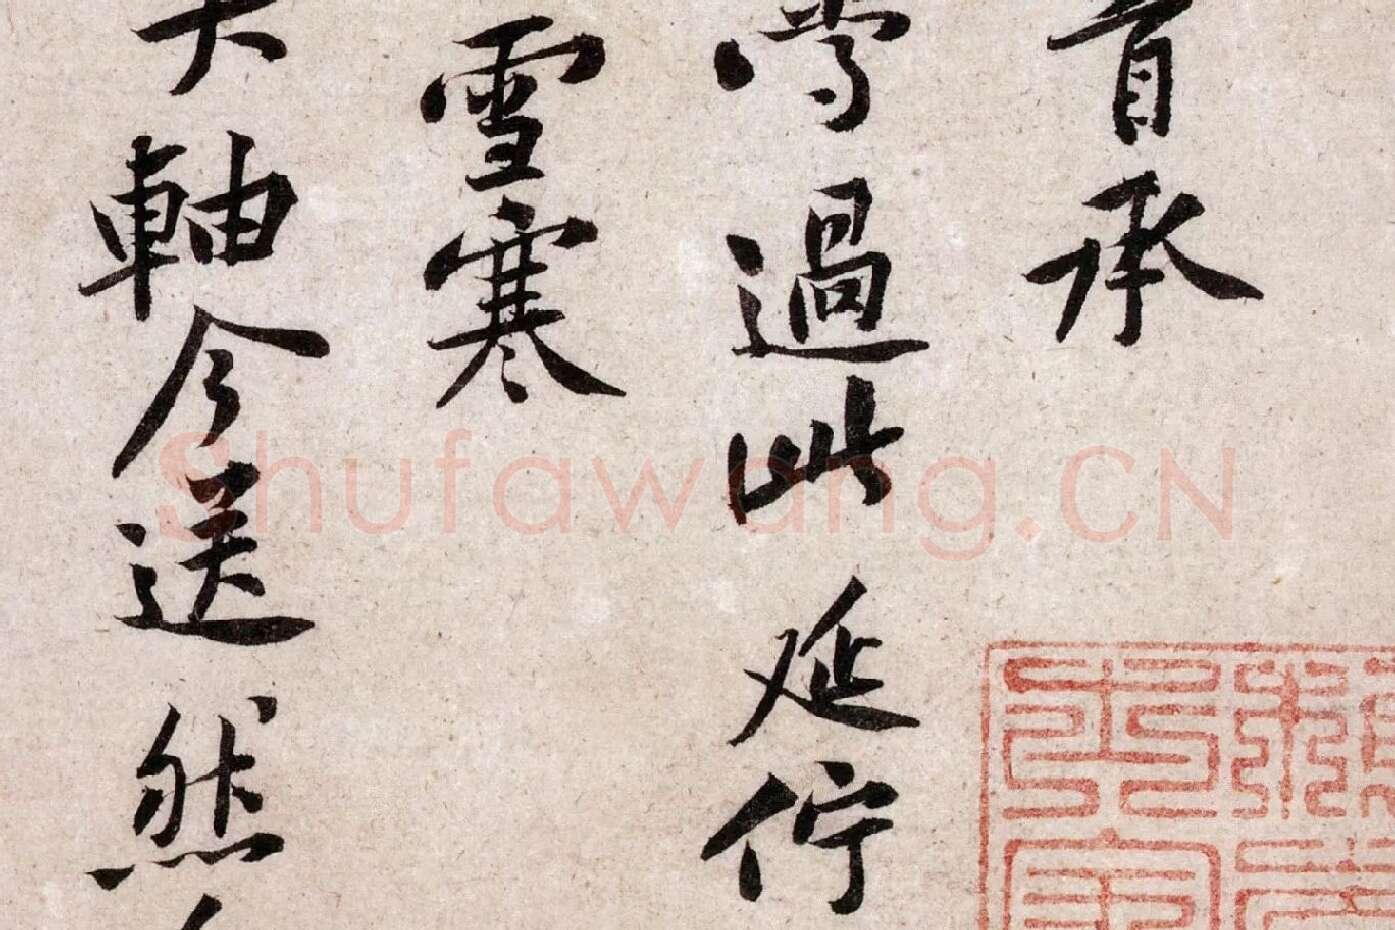 首承
過此延佇
雪寒
大軸今送然
Shufawang.CN